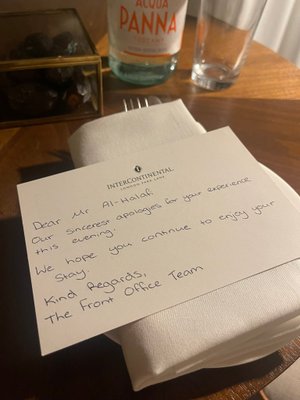 ACQUA
PANNA
TOSCANA
INTERCONTINENTAL
LONDON PARK LANE
Dear Mr Al-Halaf.
Our sincerest apologies for your experience
this evening.
We hope you continue to enjoy your
stay.
Kind Regards,
The Front Office Team